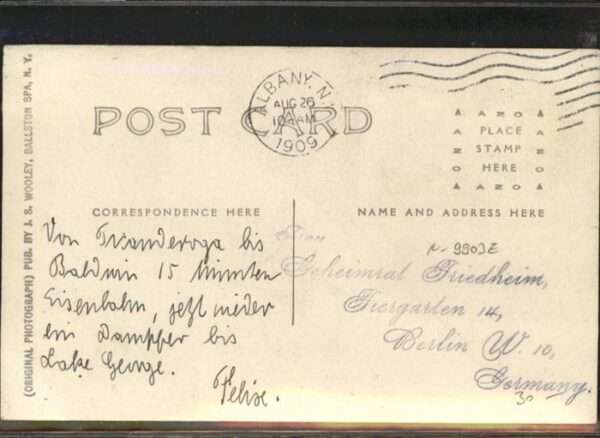 (ORIGINAL PHOTOGRAPH) PUB. BY J. S. WOOLEY, BALLSTON SPA, N. Y.
POST CARD
ALBANY, N.
AUG 26
10 AM
1909
AZO
PLACE
STAMP
HERE
AZO
CORRESPONDENCE HERE
NAME AND ADDRESS HERE
Von Ticanderoga bis
Baldwin 15 Minuten
Eisenbahn, jetzt wieder
ein Dampfer bis
Lake George.
Felix.
N-9903E
Frau
Geheimrat Friedheim,
Tiergarten 14,
Berlin W. 10,
Germany.
30